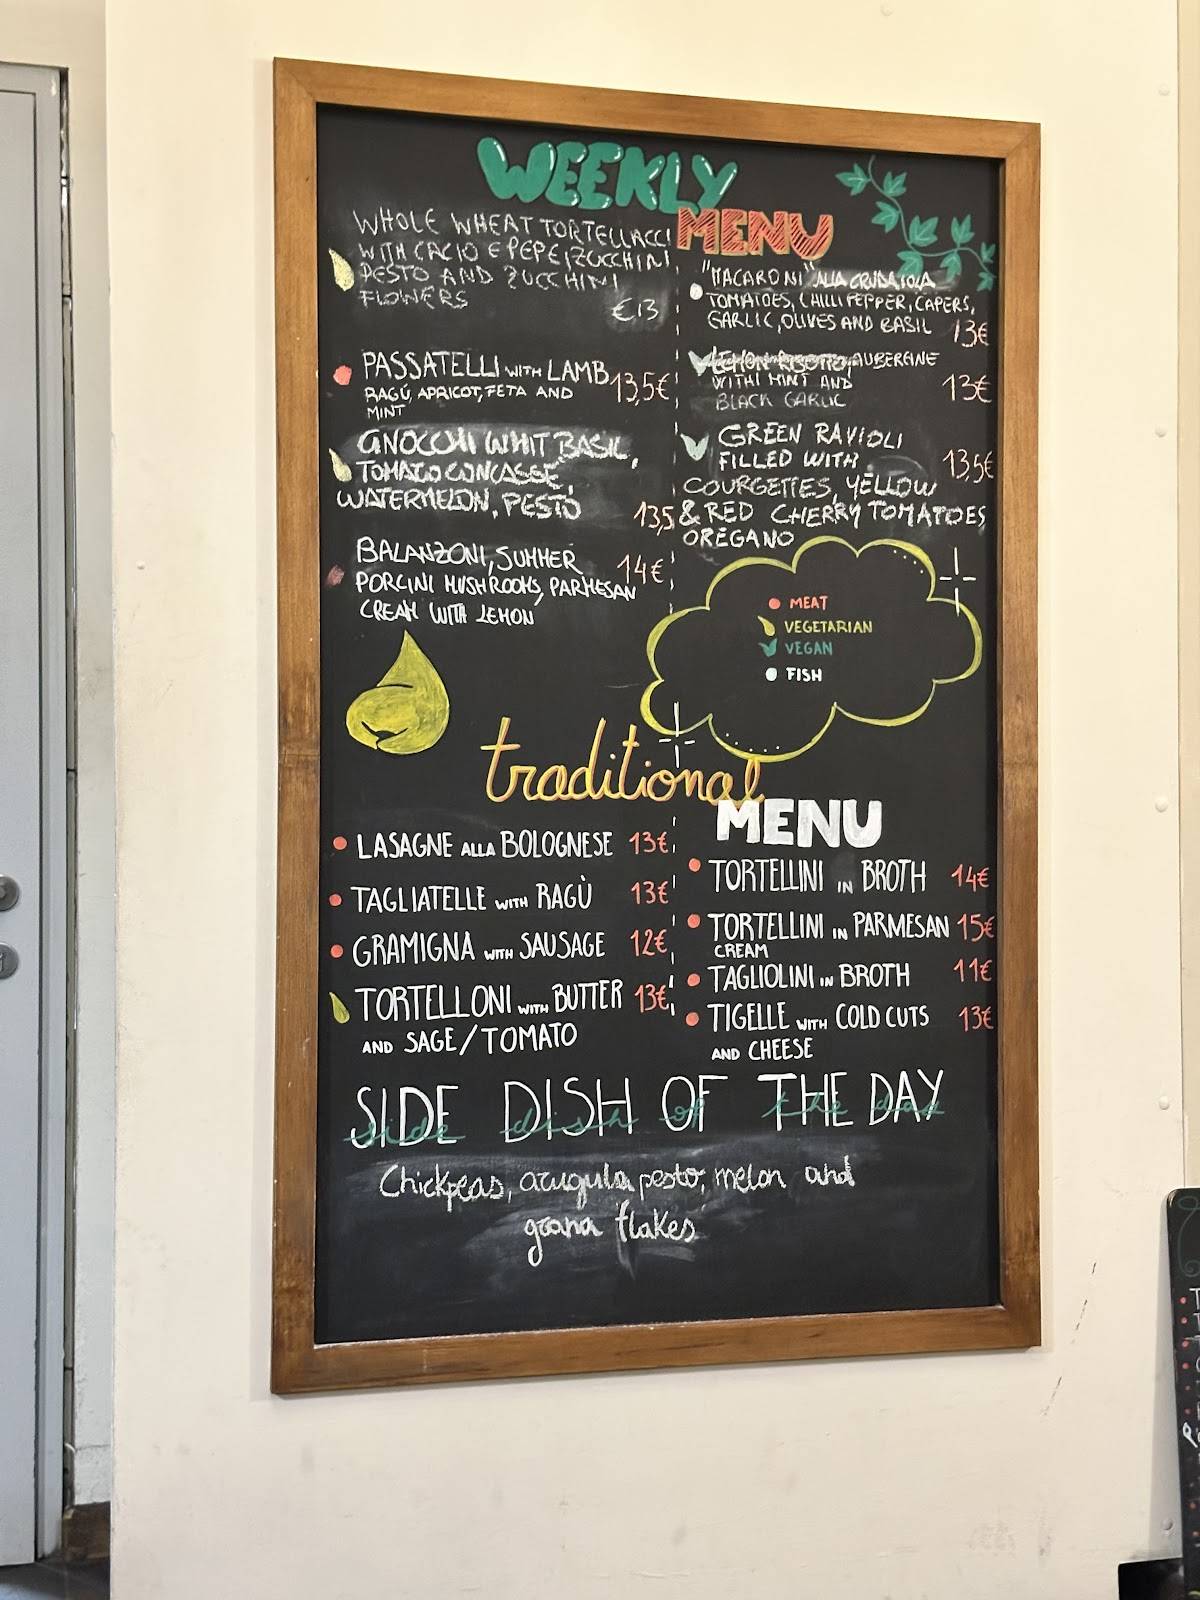 WEEKLY
MENU
WHOLE WHEAT TORTELLACCI
WITH CACIO E PEPE, ZUCCHINI
PESTO AND ZUCCHINI
FLOWERS
€13
PASSATELLI WITH LAMB
RAGÚ, APRICOT, FETA AND
MINT
13,5€
GNOCCHI WHIT BASIL,
TOMATO CONCASSÉ,
WATERMELON, PESTO
13,5
BALANZONI, SUMMER
PORCINI MUSHROOMS, PARMESAN
CREAM WITH LEMON
14€
"MACARONI" ALLA CRUDAIOLA
TOMATOES, CHILLI PEPPER, CAPERS,
GARLIC, OLIVES AND BASIL
13€
LEMON RISOTTO, AUBERGINE
WITH MINT AND
BLACK GARLIC
13€
GREEN RAVIOLI
FILLED WITH
COURGETTES, YELLOW
& RED CHERRY TOMATOES
OREGANO
13,5€
MEAT
VEGETARIAN
VEGAN
FISH
traditional
MENU
LASAGNE ALLA BOLOGNESE 13€
TAGLIATELLE WITH RAGÙ 13€
GRAMIGNA WITH SAUSAGE 12€
TORTELLONI WITH BUTTER 13€
AND SAGE/TOMATO
TORTELLINI IN BROTH 14€
TORTELLINI IN PARMESAN 15€
CREAM
TAGLIOLINI IN BROTH 11€
TIGELLE WITH COLD CUTS 13€
AND CHEESE
SIDE DISH OF THE DAY
side dish of the day
Chickpeas, arugula pesto, melon and
grana flakes